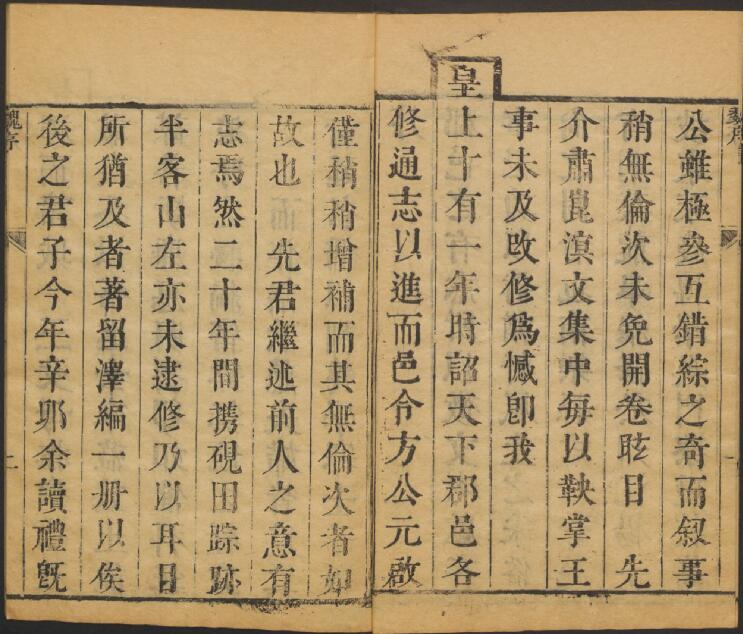 公雖極參互錯綜之奇而叙事
稍無倫次未免開卷眩目 先
介肅崑溟文集中每以鞅掌王
事未及改修爲憾卽我
皇上十有一年時詔天下郡邑各
修通志以進而邑令方公元啟
僅稍稍增補而其無倫次者如
故也而 先君繼述前人之意有
志焉然二十年間携硯田踪跡
半客山左亦未逮修乃以耳目
所猶及者著留澤編一册以俟
後之君子今年辛卯余讀禮旣
魏序
一